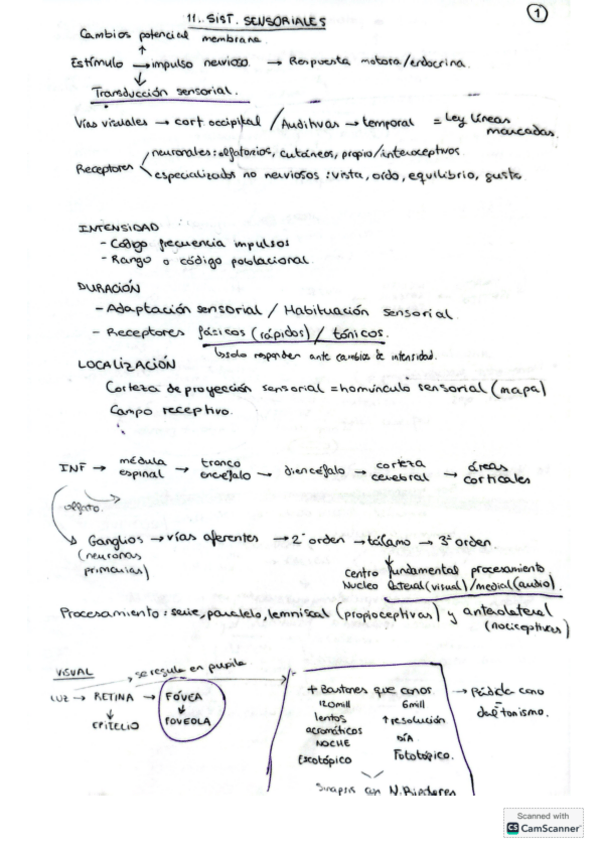 11. SIST. SENSORIALES
1
Cambios potencial membrana.
Estímulo → impulso nervioso → Respuesta motora/endocrina.
Transducción sensorial.
Vías visuales → cort. occipital / Auditivas → temporal = Ley líneas marcadas.
Receptores
neuronales: olfatorios, cutáneos, propio/interoceptivos
especializados no nerviosos: vista, oído, equilibrio, gusto
INTENSIDAD
- Código frecuencia impulsos
- Rango o código poblacional.
DURACIÓN
- Adaptación sensorial / Habituación sensorial.
- Receptores fásicos (rápidos) / tónicos.
solo responden ante cambios de intensidad.
LOCALIZACIÓN
Corteza de proyección sensorial = homúnculo sensorial (mapa)
Campo receptivo.
INF → médula espinal → tronco encéfalo → diencéfalo → corteza cerebral → áreas corticales
olfato.
Ganglios → vías aferentes → 2º orden → tálamo → 3º orden
(neuronas primarias)
Centro fundamental procesamiento
Nucleo lateral (visual) / medial (audio).
Procesamiento: serie, paralelo, lemniscal (propioceptivas) y anterolateral (nociceptivas)
VISUAL
se regula en pupila
LUZ → RETINA → FÓVEA
EPITELIO
FOVEOLA
+ Bastones que conos.
120mill 6mill
lentos ↑ resolución
acromáticos
DÍA
NOCHE
Escotópico Fototópico.
Sinapsis con N. Bipolares
→ Pérdida cono daltonismo.
Scanned with
CS CamScanner